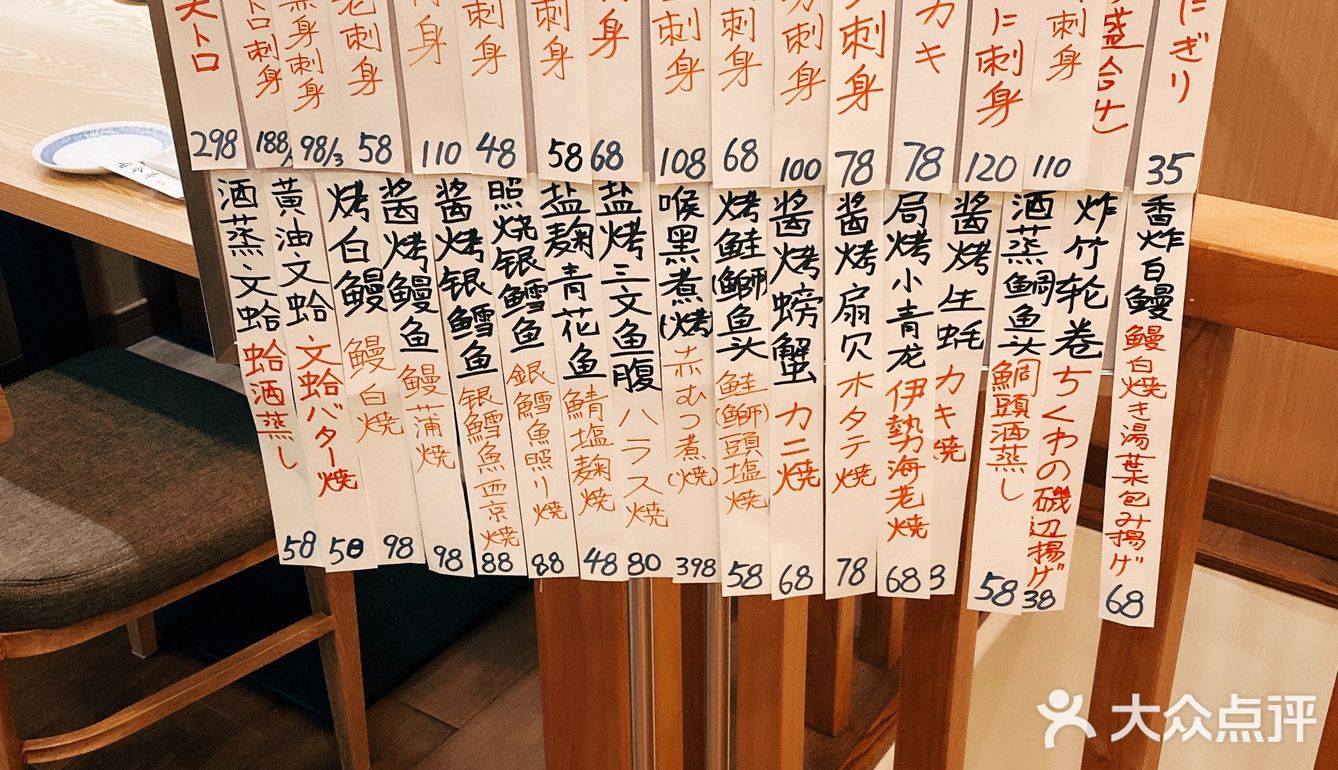 大トロ
298
トロ刺身
188/
身刺身
98/3
老刺身
58
身
110
刺身
48
刺身
58
身
68
刺身
108
刺身
68
刺身
100
刺身
78
カキ
78
に刺身
120
刺身
110
盛合せ
にぎり
35
酒蒸文蛤 蛤酒蒸し
58
黄油文蛤 文蛤バター焼
58
烤白鳗 鰻白焼
98
酱烤鳗鱼 鰻蒲焼
98
酱烤银鳕鱼 银鱈魚西京焼
88
照烧银鳕鱼 銀鱈魚照り焼
88
盐麹青花鱼 鯖塩麹焼
48
盐烤三文鱼腹 ハラス焼
80
喉黑煮(烤) 赤むつ煮(焼)
398
烤鲑(鰤)鱼头 鮭(鰤)頭塩焼
58
酱烤螃蟹 カニ焼
68
酱烤扇贝 ホタテ焼
78
局烤小青龙 伊勢海老焼
68
酱烤生蚝 カキ焼
8
酒蒸鲷鱼头 鯛頭酒蒸し
58
炸竹轮卷 ちくわの磯辺揚げ
38
香炸白鳗 鰻白焼き湯葉包み揚げ
68
大众点评